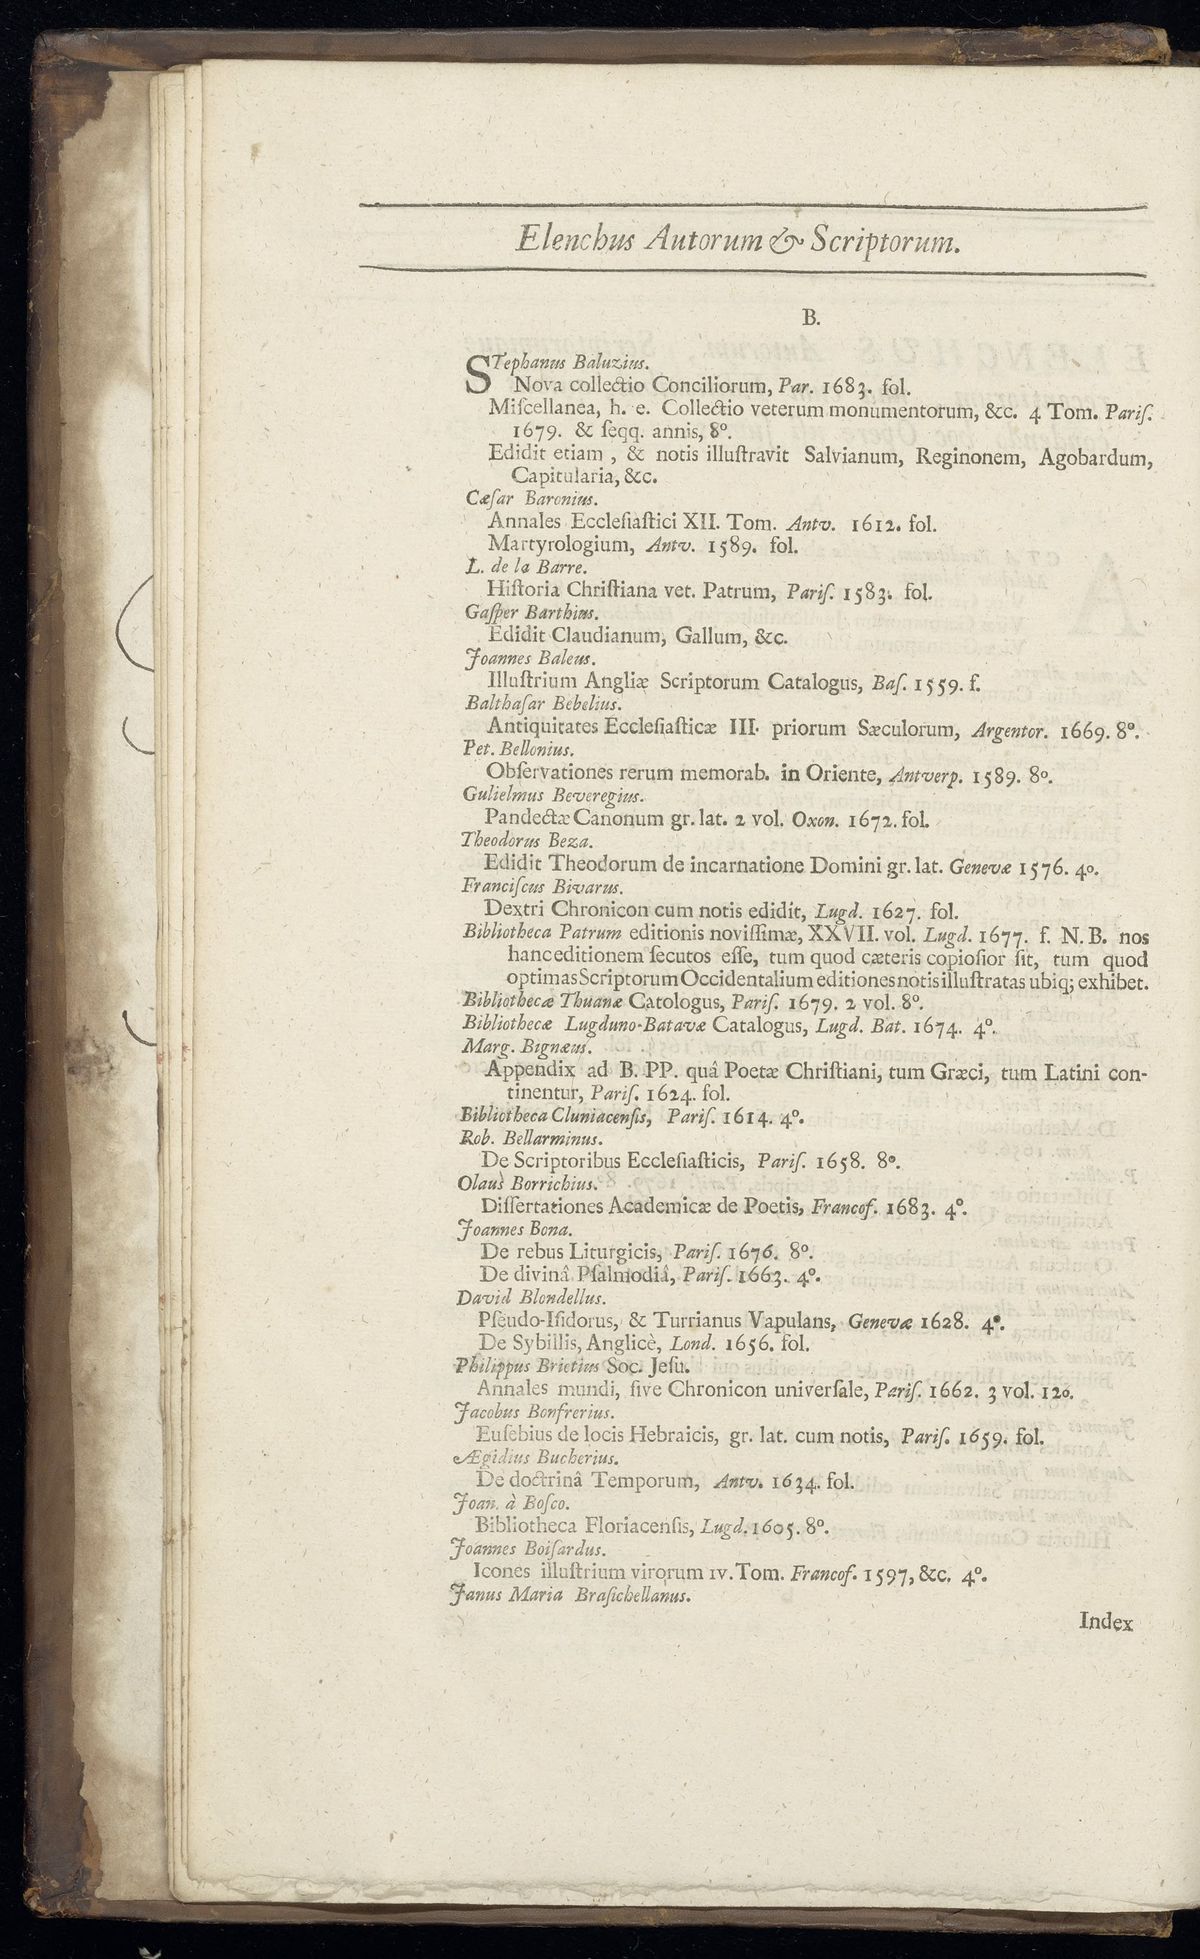 Elenchus Autorum & Scriptorum.
B.
STephanus Baluzius.
Nova collectio Conciliorum, Par. 1683. fol.
Miſcellanea, h. e. Collectio veterum monumentorum, &c. 4 Tom. Pariſ.
1679. & ſeqq. annis, 8º.
Edidit etiam, & notis illuſtravit Salvianum, Reginonem, Agobardum,
Capitularia, &c.
Cæſar Baronius.
Annales Eccleſiaſtici XII. Tom. Antv. 1612. fol.
Martyrologium, Antv. 1589. fol.
L. de la Barre.
Hiſtoria Chriſtiana vet. Patrum, Pariſ. 1583. fol.
Gaſper Barthius.
Edidit Claudianum, Gallum, &c.
Joannes Baleus.
Illuſtrium Angliæ Scriptorum Catalogus, Baſ. 1559. f.
Balthaſar Bebelius.
Antiquitates Eccleſiaſticæ III. priorum Sæculorum, Argentor. 1669. 8º.
Pet. Bellonius.
Obſervationes rerum memorab. in Oriente, Antverp. 1589. 8º.
Gulielmus Beveregius.
Pandectæ Canonum gr. lat. 2 vol. Oxon. 1672. fol.
Theodorus Beza.
Edidit Theodorum de incarnatione Domini gr. lat. Genevæ 1576. 4º.
Franciſcus Bivarus.
Dextri Chronicon cum notis edidit, Lugd. 1627. fol.
Bibliotheca Patrum editionis noviſſimæ, XXVII. vol. Lugd. 1677. f. N. B. nos
hanc editionem ſecutos eſſe, tum quod cæteris copioſior ſit, tum quod
optimas Scriptorum Occidentalium editiones notis illuſtratas ubiq; exhibet.
Bibliothecæ Thuanæ Catologus, Pariſ. 1679. 2 vol. 8º.
Bibliothecæ Lugduno-Batavæ Catalogus, Lugd. Bat. 1674. 4º.
Marg. Bignæus.
Appendix ad B. PP. quâ Poetæ Chriſtiani, tum Græci, tum Latini con-
tinentur, Pariſ. 1624. fol.
Bibliotheca Cluniacenſis, Pariſ. 1614. 4º.
Rob. Bellarminus.
De Scriptoribus Eccleſiaſticis, Pariſ. 1658. 8º.
Olaus Borrichius.
Diſſertationes Academicæ de Poetis, Francof. 1683. 4º.
Joannes Bona.
De rebus Liturgicis, Pariſ. 1676. 8º.
De divinâ Pſalmodiâ, Pariſ. 1663. 4º.
David Blondellus.
Pſeudo-Iſidorus, & Turrianus Vapulans, Genevæ 1628. 4º.
De Sybillis, Anglicè, Lond. 1656. fol.
Philippus Brietius Soc. Jeſu.
Annales mundi, ſive Chronicon univerſale, Pariſ. 1662. 3 vol. 12º.
Jacobus Bonfrerius.
Euſebius de locis Hebraicis, gr. lat. cum notis, Pariſ. 1659. fol.
Ægidius Bucherius.
De doctrinâ Temporum, Antv. 1634. fol.
Joan. à Boſco.
Bibliotheca Floriacenſis, Lugd. 1605. 8º.
Joannes Boiſardus.
Icones illuſtrium virorum IV. Tom. Francof. 1597, &c. 4º.
Janus Maria Braſichellanus.
Index